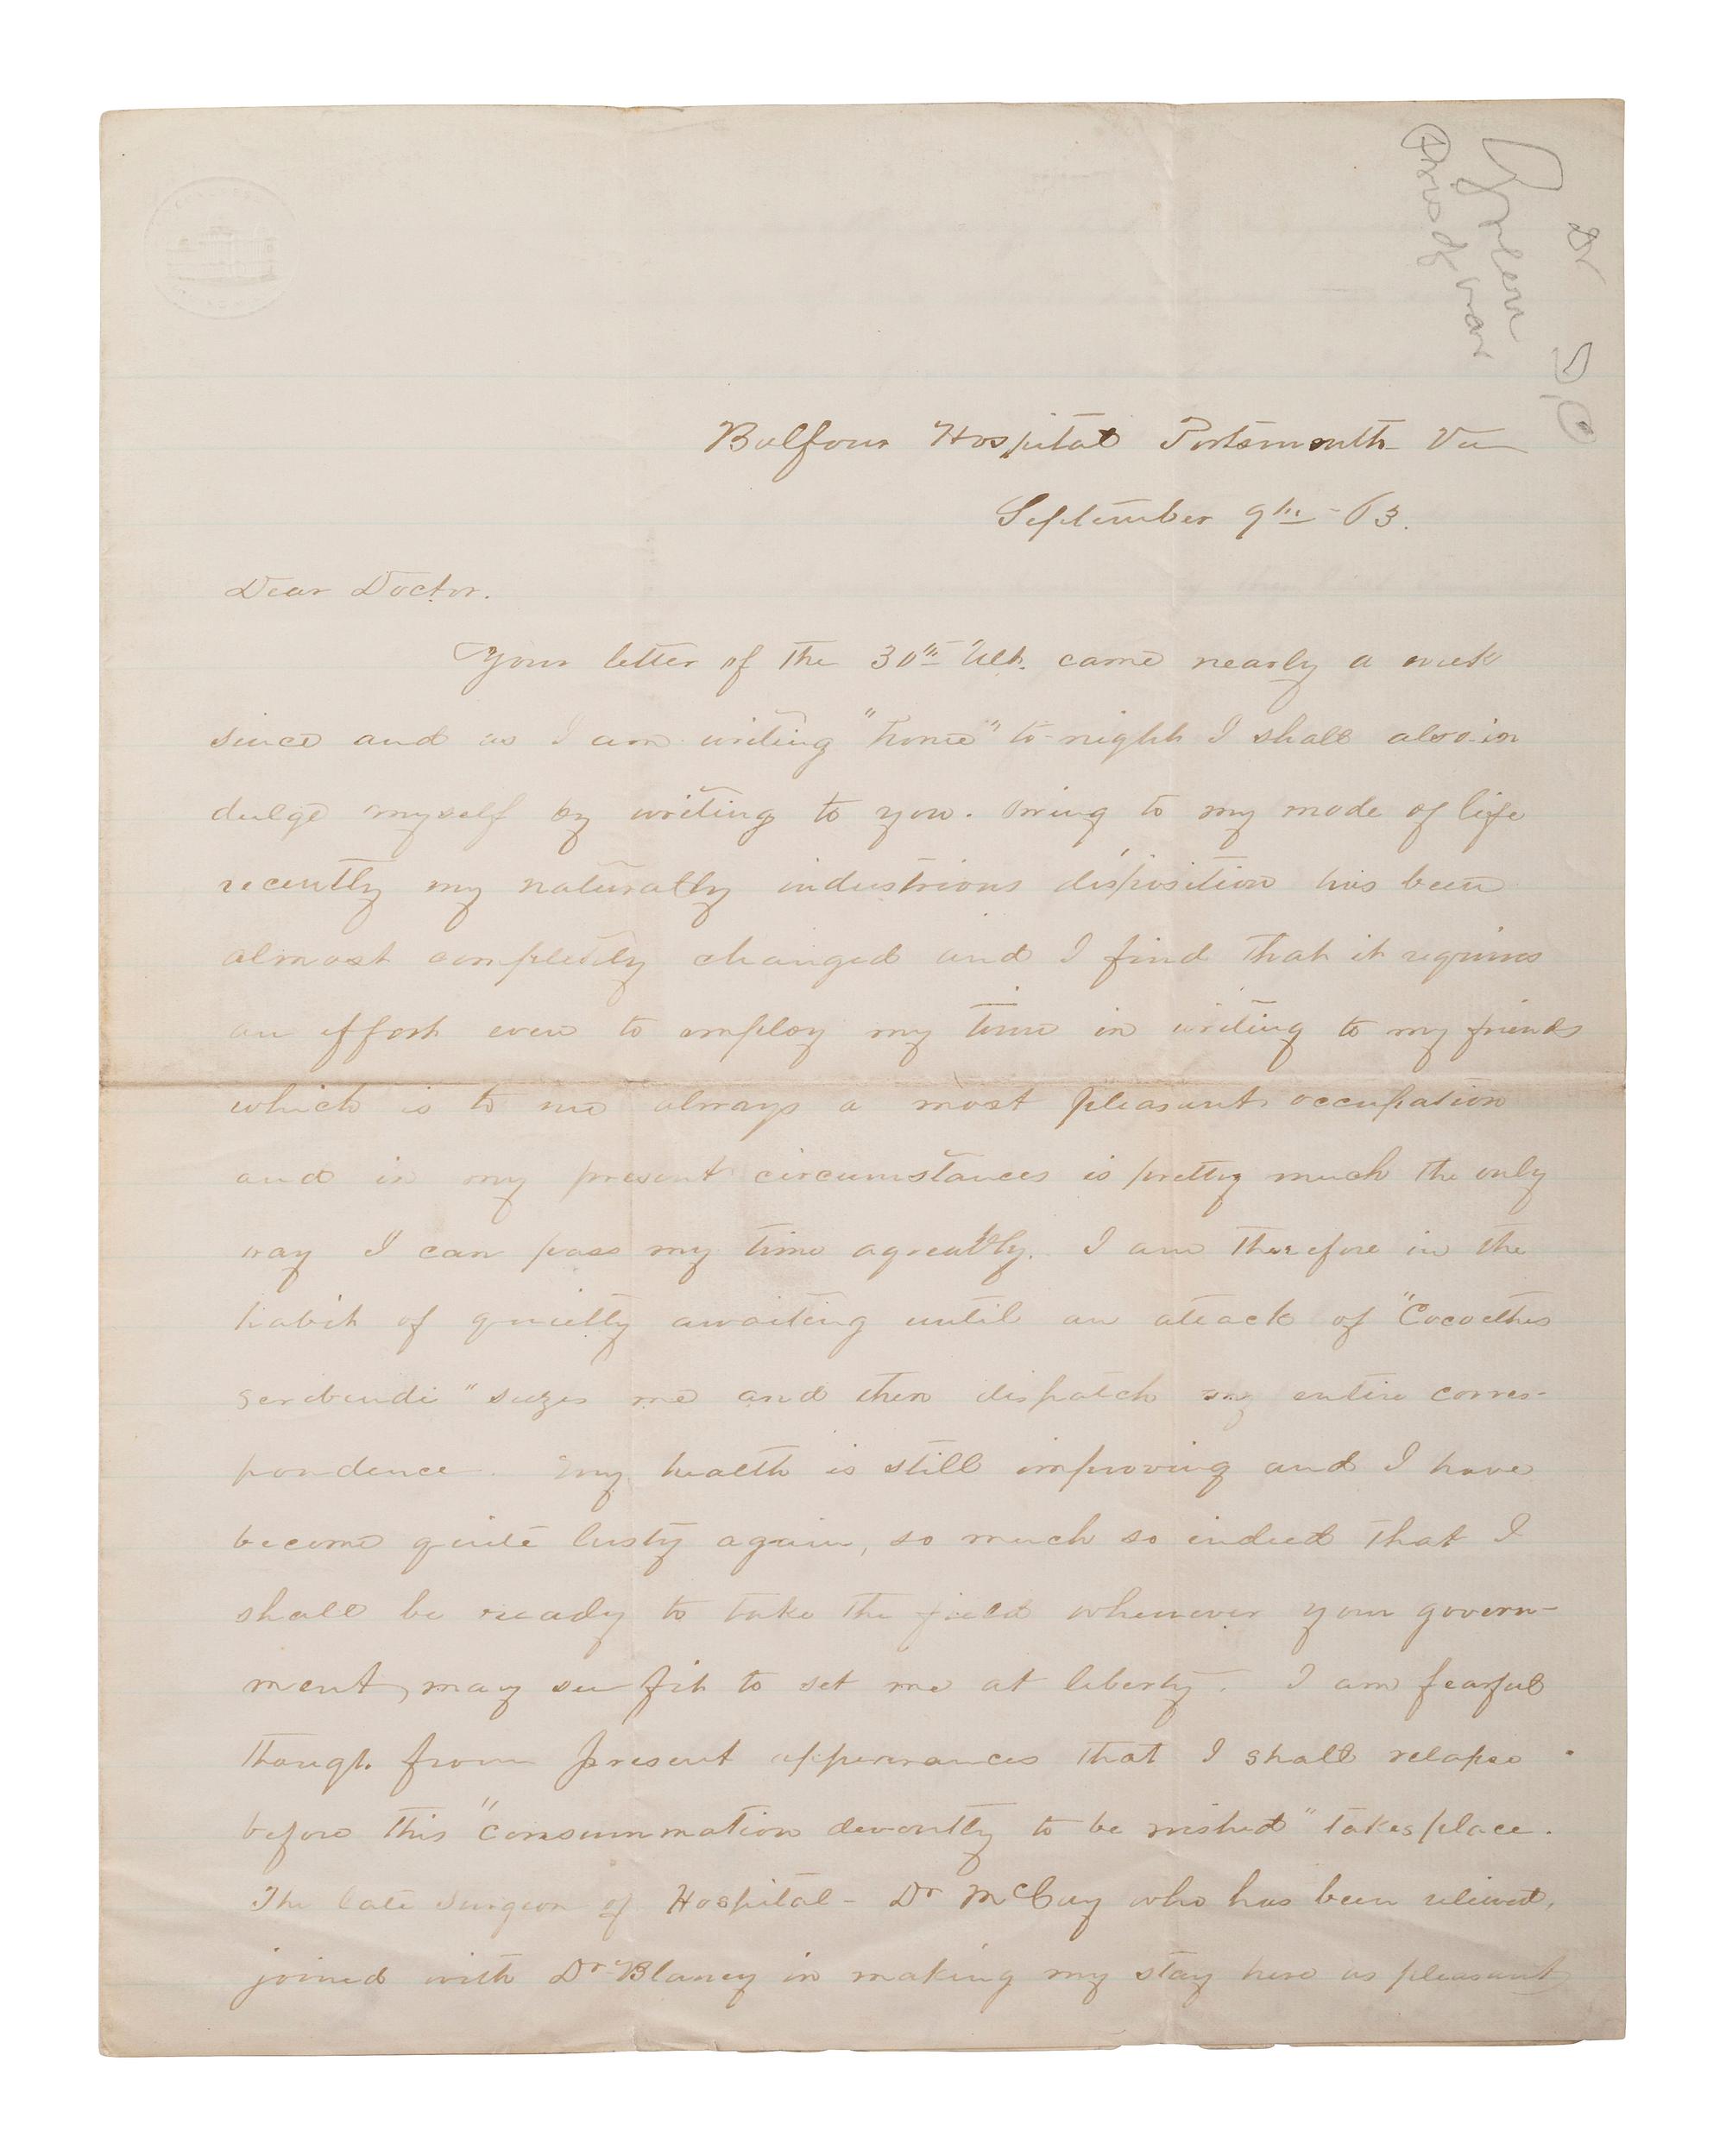 Dr
Pris of war
Balfour Hospital Portsmouth Va
September 9th - 63.
Dear Doctor.
Your letter of the 30th Ult. came nearly a week
since and as I am writing "home" to-night I shall also in
dulge myself by writing to you. Owing to my mode of life
recently my naturally industrious disposition has been
almost completely changed and I find that it requires
an effort even to employ my time in writing to my friends
which is to me always a most pleasant occupation
and in my present circumstances is pretty much the only
way I can pass my time agreably. I am therefore in the
habit of quietly awaiting until an attack of "Cocoethes
scribendi" seizes me and then dispatch my entire corres-
pondence. My health is still improving and I have
become quite lusty again, so much so indeed that I
shall be ready to take the field whenever your govern-
ment, may see fit to set me at liberty. I am fearful
though from present appearances that I shall relapse
before this "consummation devoutly to be wished" takes place.
The late surgeon of Hospital - Dr McCay who has been relieved,
joined with Dr Blaney in making my stay here as pleasant